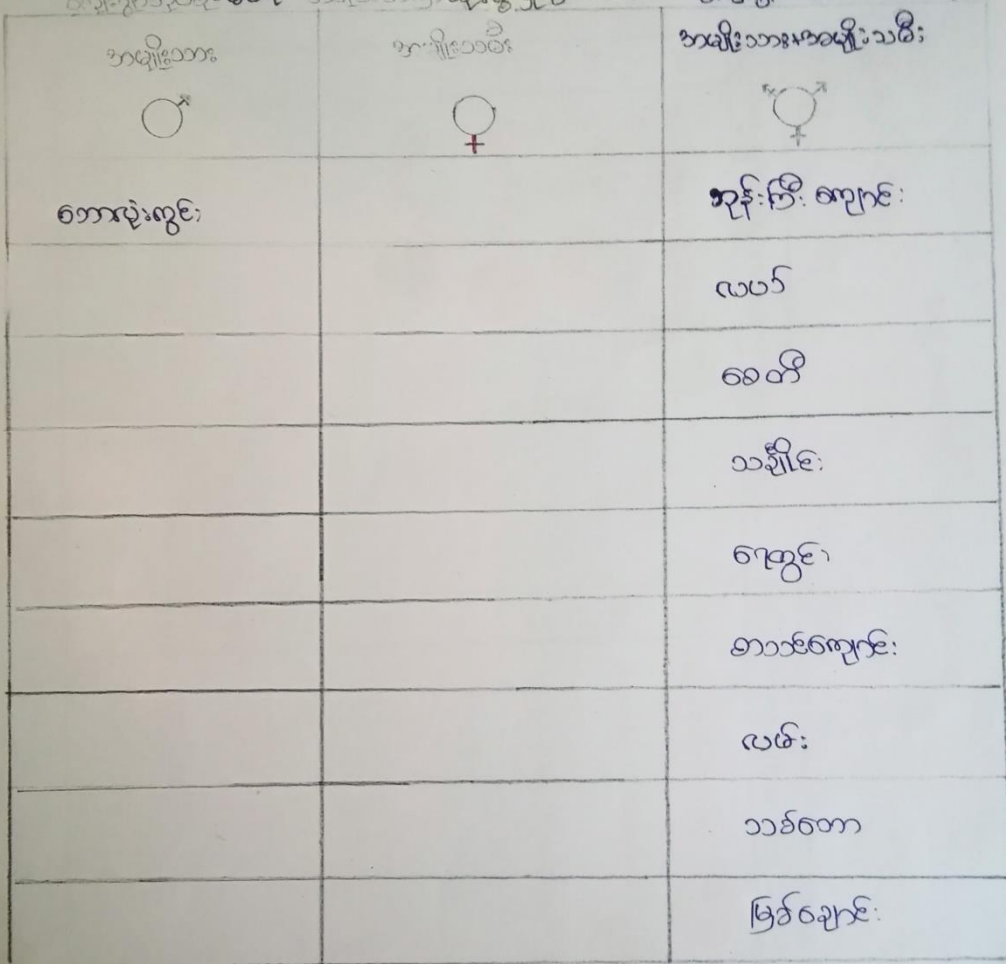 အမျိုးသား အမျိုးသမီး အမျိုးသား+အမျိုးသမီး
ဘောလုံးကွင်း ဘုန်းကြီးကျောင်း
လယ်
စေတီ
သင်္ချိုင်း
ရေတွင်း
စာသင်ကျောင်း
လမ်း
သစ်တော
မြစ်ချောင်း